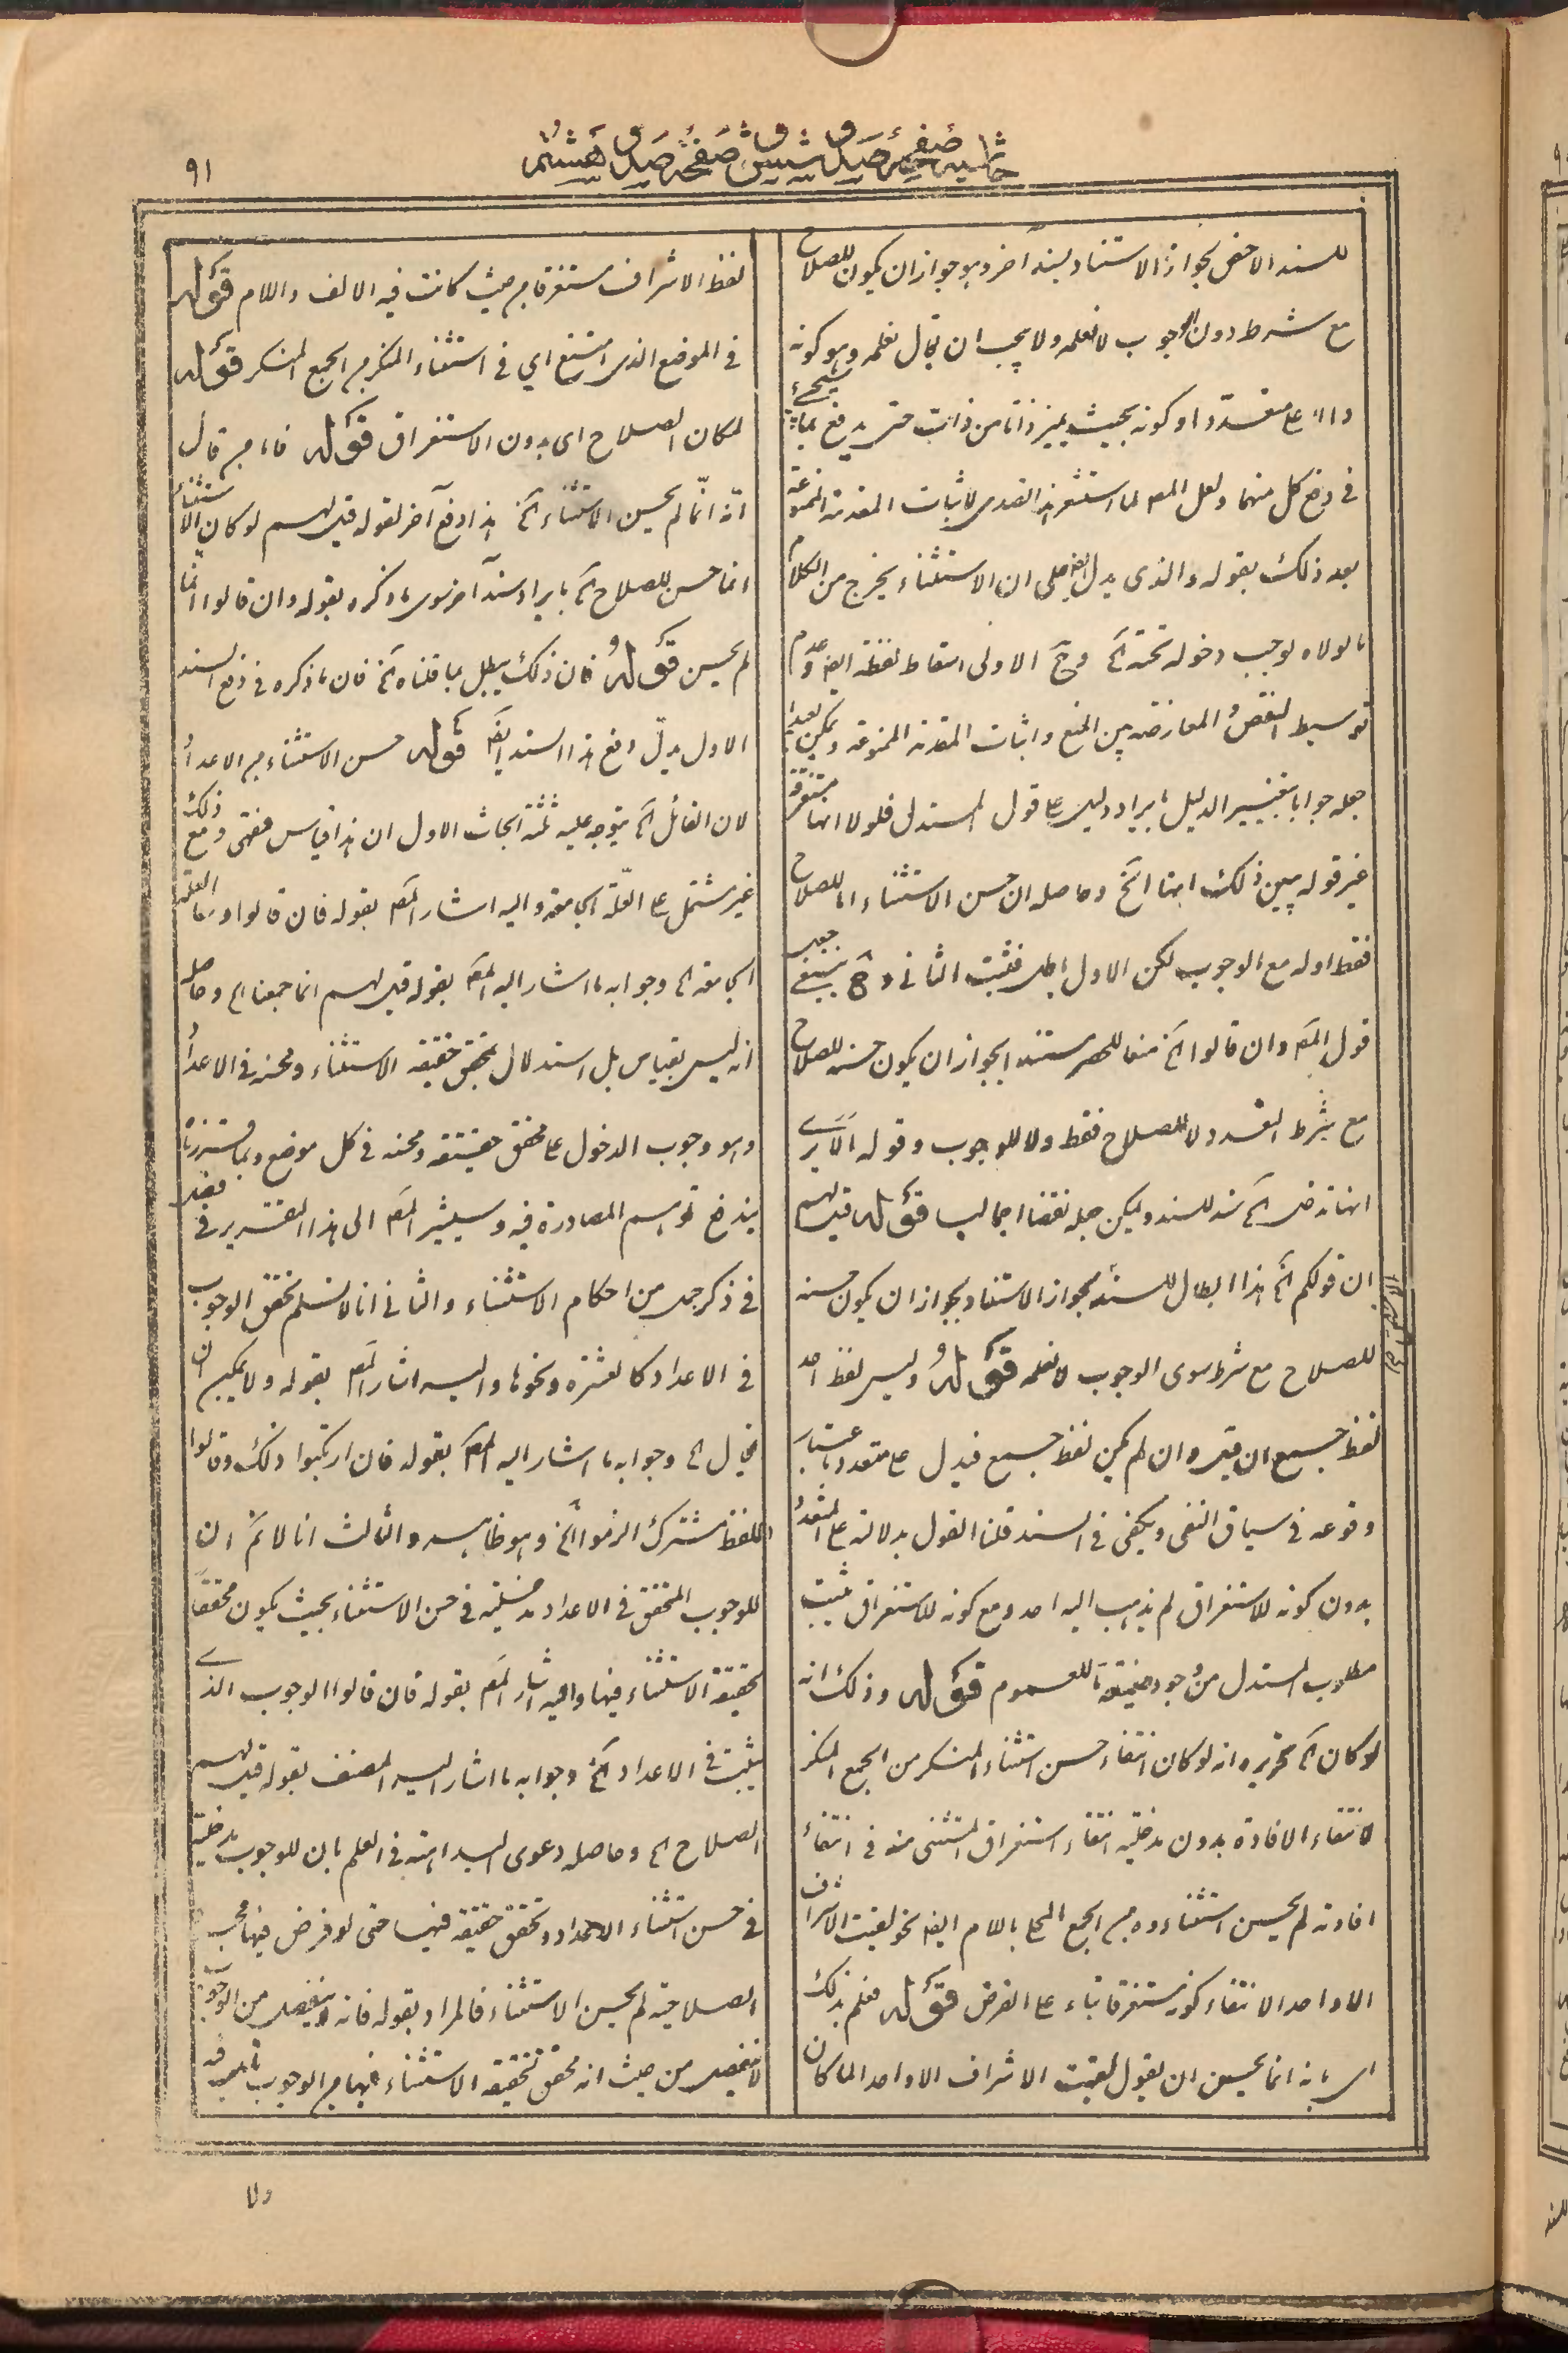 حاشيه صفحهٔ صد و شش و صفحهٔ صد و هشتم
٩١
للسند الاخص لجواز الاستناد بسند آخر وهو جواز ان يكون للصلاح
مع شرط دون الوجوب لا نعلمه ولا يجب ان يقال نعلمه وهو كونه
دالا على متعدد او كونه بحيث يميز ذاتا من ذات حتى يدفع بما سيجئ
فى دفع كل منهما ولعل المصـ لما استشعر هذا تصدى لاثبات المقدمة الممنوعة
بعد ذلك بقوله والذى يدل ايضا على ان الاستثناء يخرج من الكلام
ما لولاه لوجب دخوله تحته آلخ وح الاولى اسقاط لفظة ايضا وعدم
توسيط النقض والمعارضة بين المنع واثبات المقدمة الممنوعة ويمكن
جعله جوابا بتغيير الدليل بايراد دليل على قول المستدل فلولا انها مستغرقة
غير قوله يبين ذلك انها آلخ وحاصله ان حسن الاستثناء اما للصلاح
فقط او له مع الوجوب لكن الاول باطل فثبت الثانى وح ينبغى جعل
قول المصـ وان قالوا آلخ منعا للحصر مستندا بجواز ان يكون حسنه للصلاح
مع شرط التعدد لا للصلاح فقط ولا للوجوب وقوله الا يرى
انها تدخل آلخ سند للسند ويمكن جعله نقضا اجماليا قوله قيل لهم
ان قولكم آلخ هذا ابطال للسند بجواز الاستناد بجواز ان يكون حسنه
للصلاح مع شرط سوى الوجوب لا نعلمه قوله وليس لفظ احد
لفظ جميع ان قيل وان لم يكن لفظ جميع فيدل على متعدد باعتبار
وقوعه فى سياق النفى ويكفى فى السند قلنا القول بدلالته على المتعدد
بدون كونه للاستغراق لم يذهب اليه احد ومع كونه للاستغراق يثبت
مطلوب المستدل من وجود صيغة للعموم قوله وذلك انه
لو كان آلخ تحريره انه لو كان انتفاء حسن استثناء المنكر من الجمع المنكر
لانتفاء الافادة بدون مدخلية انتفاء استغراق المستثنى منه فى انتفاء
افادته لم يحسن استثناءوه من الجمع المحلى باللام ايضا نحو لقيت الاشراف
الا واحدا لانتفاء كونه مستغرقا بناء على الفرض قوله فعلم بذلك
اى بانه انما يحسن ان يقول لقيت الاشراف الا واحدا لما كان
لفظ الاشراف مستغرقا من حيث كانت فيه الالف واللام قوله
فى الموضع الذى امتنع اى فى استثناء المنكر من الجمع المنكر قوله
لمكان الصلاح اى بدون الاستغراق قوله فاما من قال
انه انما لم يحسن الاستثناء آلخ هذا دفع آخر لقوله قيل لهم لو كان الاستثناء
انما حسن للصلاح آلخ بايراد سند آخر سوى ما ذكره بقوله وان قالوا انما
لم يحسن قوله فان ذلك يبطل بما قلناه آلخ فان ما ذكره فى دفع السند
الاول يدل دفع هذا السند ايضا قوله حسن الاستثناء من الاعداد
لان القائل آلخ يتوجه عليه ثلثة ابحاث الاول ان هذا قياس فقهى ومع ذلك
غير مشتمل على العلة الجامعة واليه اشار المصـ بقوله فان قالوا وما العلة
الجامعة آلخ وجوابه ما اشار اليه المصـ بقوله قيل لهم انما جمعنا آلخ وحاصله
انه ليس بقياس بل استدلال بتحقق حقيقة الاستثناء ومحسنه فى الاعداد
وهو وجوب الدخول على تحقق حقيقته ومحسنه فى كل موضع وبما قررنا
يندفع توهم المصادرة فيه وسيشير المصـ الى هذا التقرير فى فصل
فى ذكر جمل من احكام الاستثناء والثانى انا لا نسلم تحقق الوجوب
فى الاعداد كالعشرة ونحوها واليه اشار المصـ بقوله ولا يمكن ان
يقال آلخ وجوابه ما اشار اليه المصـ بقوله فان ارتكبوا ذلك وقالوا
اللفظ مشترك الزموا آلخ وهو ظاهر والثالث انا لا نم ان
للوجوب المتحقق فى الاعداد مدخلية فى حسن الاستثناء بحيث يكون محققا
لحقيقة الاستثناء فيها واليه اشار المصـ بقوله فان قالوا الوجوب الذى
يثبت فى الاعداد آلخ وجوابه ما اشار اليه المصنف بقوله قيل لهم
الصلاح آلخ وحاصله دعوى البداهة فى العلم بان للوجوب مدخلية
فى حسن استثناء الاعداد وتحقق حقيقته فيها حتى لو فرض فيها محب
الصلاحية لم يحسن الاستثناء فالمراد بقوله فانه لا ينفصل من الوجوب
لا ينفصل من حيث انه محقق لحقيقة الاستثناء فيها من الوجوب
ولا